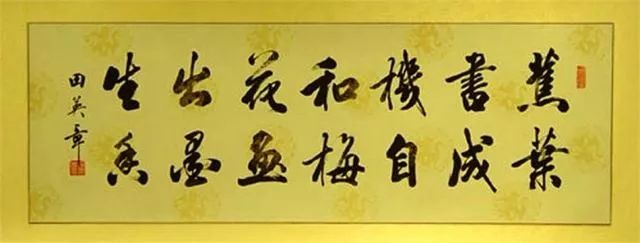 蕉葉
書成
機自
和梅
花画
出墨
生香
田英章